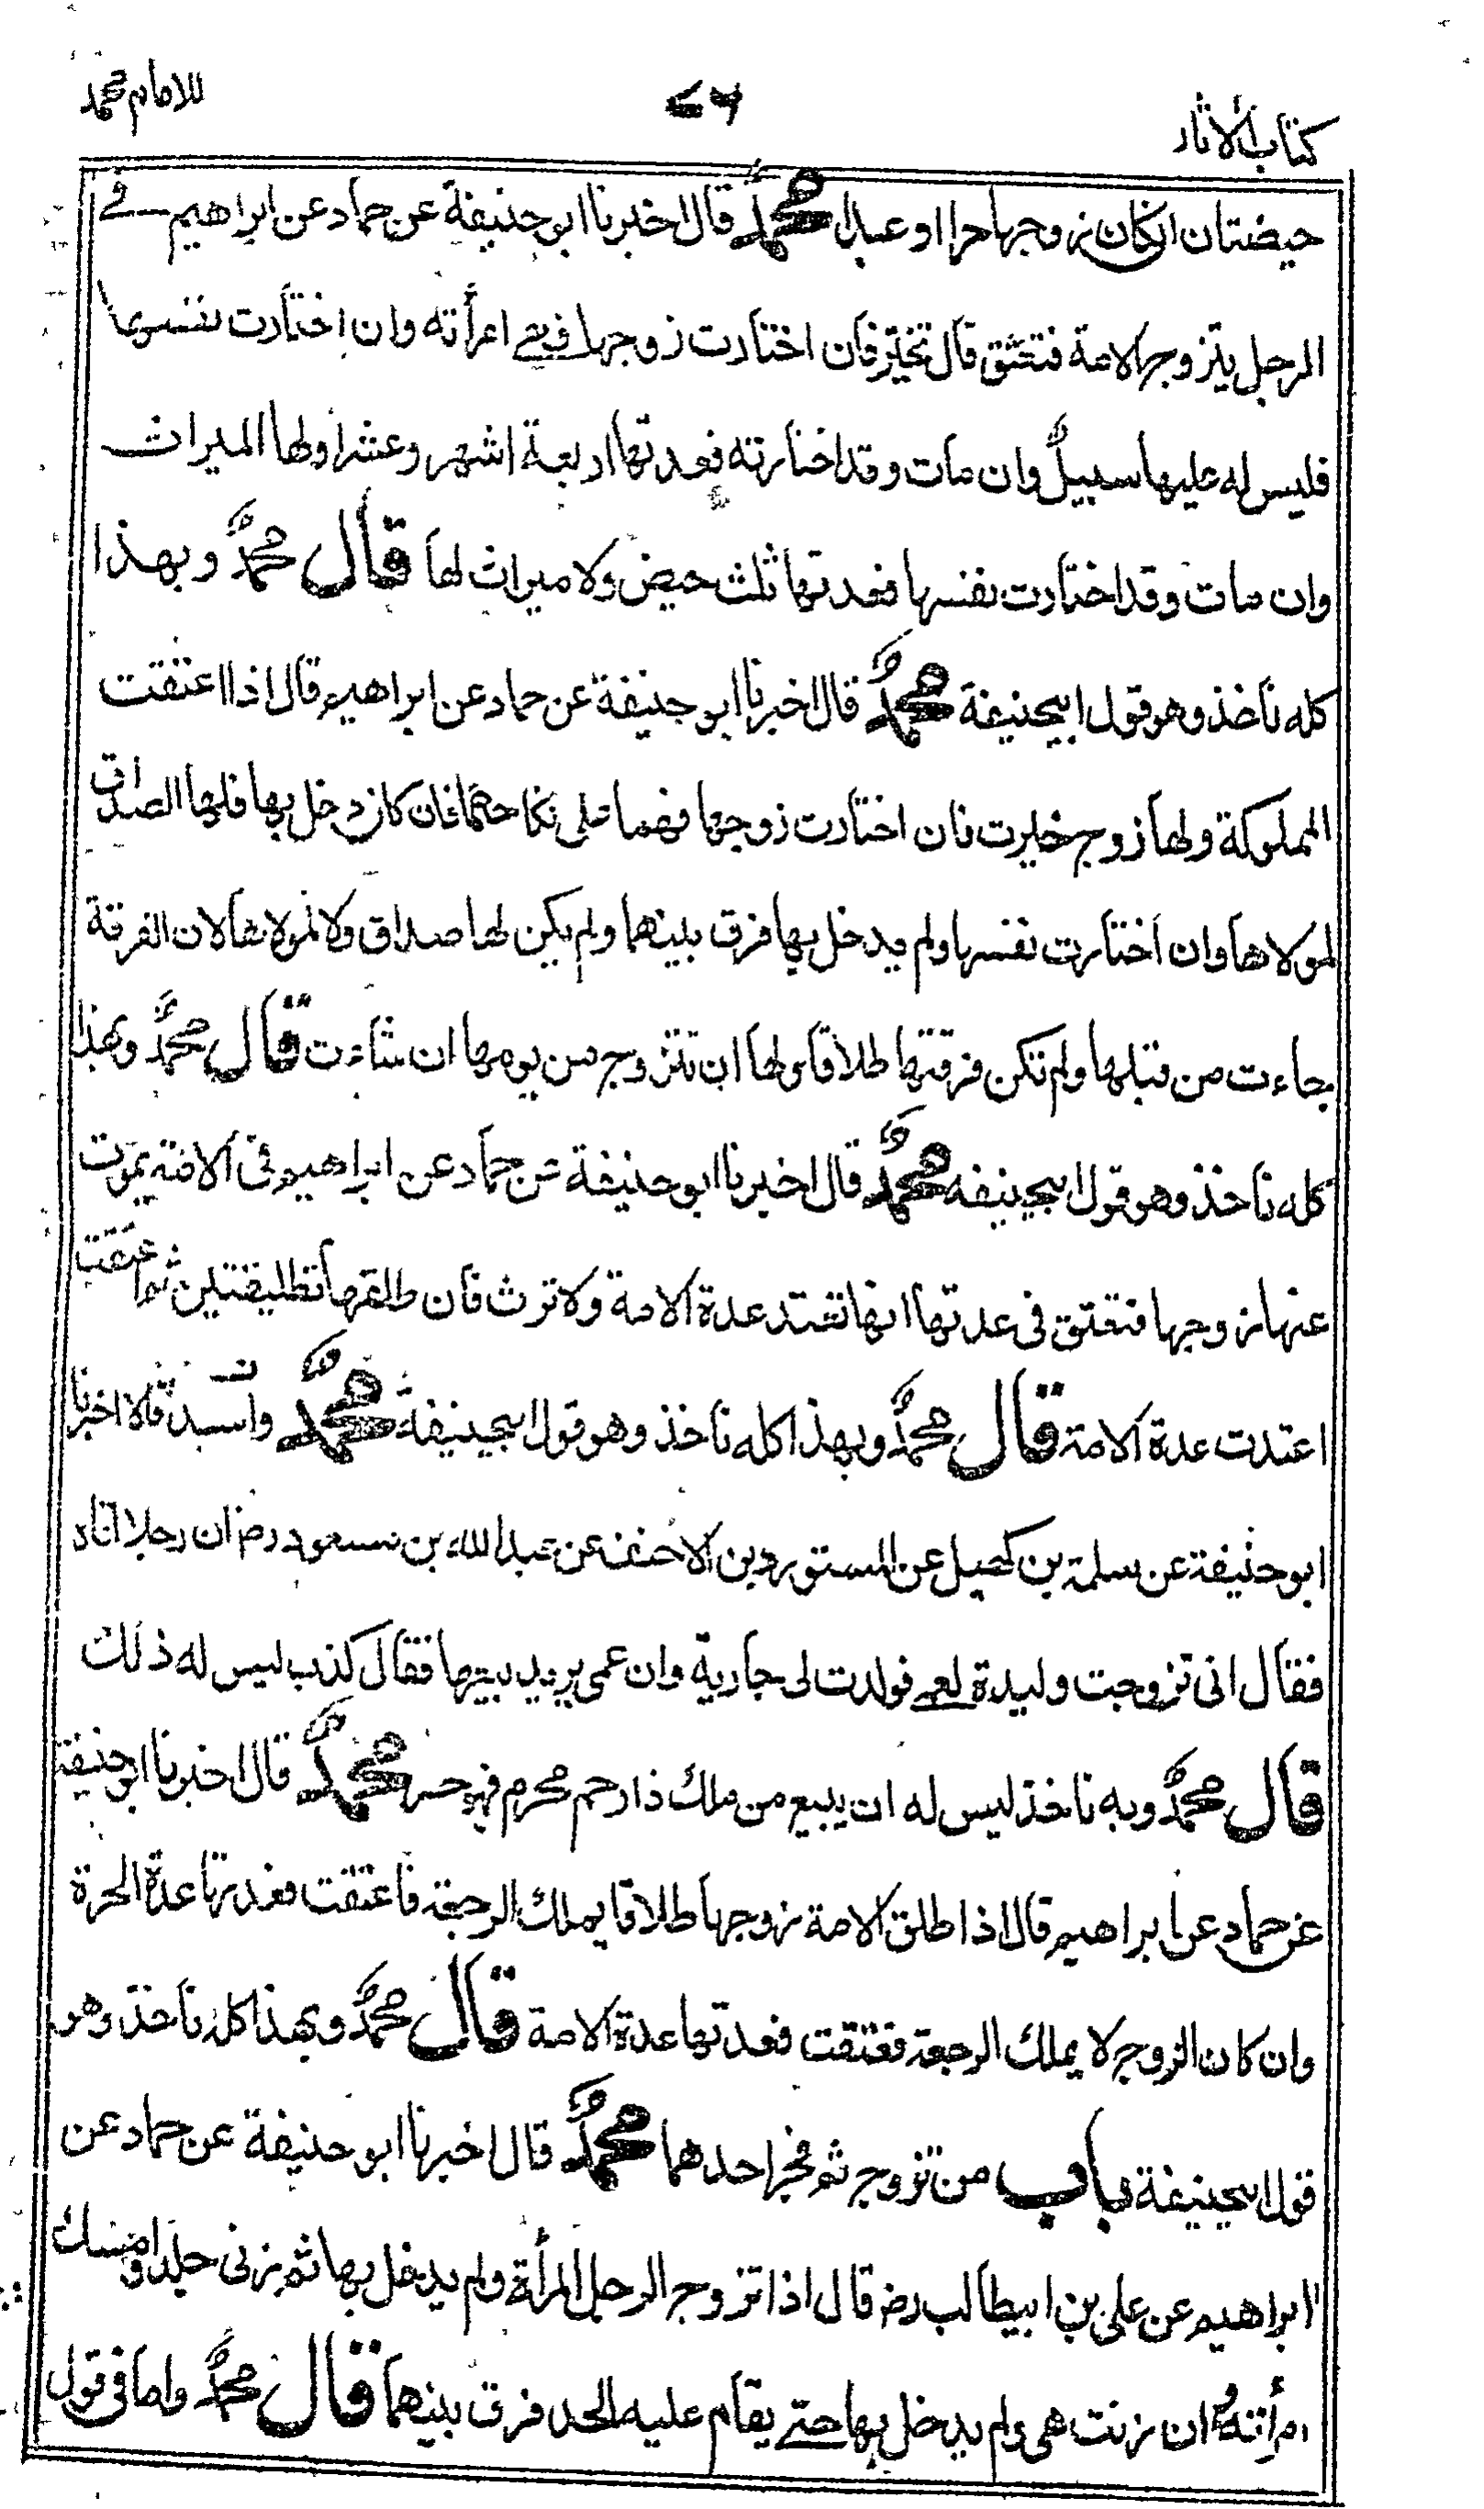 كتاب الاثار
٧٦
للامام محمد
حيضتان انكان زوجها حرا او عبدا محمد قال اخبرنا ابو حنيفة عن حماد عن ابراهيم في
الرجل يتزوج الامة فتعتق قال تخير فان اختارت زوجها فهي امرأته وان اختارت نفسها
فليس له عليها سبيل وان مات وقد اختارته فعدتها اربعة اشهر وعشرا ولها الميراث
وان مات وقد اختارت نفسها فعدتها ثلث حيض ولا ميراث لها قال محمد وبهذا
كله نأخذ وهو قول ابيحنيفة محمد قال اخبرنا ابو حنيفة عن حماد عن ابراهيم قال اذا اعتقت
المملوكة ولها زوج خيرت فان اختارت زوجها فهما على نكاحهما فان كان دخل بها فلها الصداق
لمولاها وان اختارت نفسها ولم يدخل بها فرق بينهما ولم يكن لها صداق ولا لمولاها لان الفرقة
جاءت من قبلها ولم تكن فرقتها طلاقا ولها ان تتزوج من يومها ان شاءت قال محمد وبهذا
كله نأخذ وهو قول ابيحنيفه محمد قال اخبرنا ابو حنيفة عن حماد عن ابراهيم في الامة يموت
عنها زوجها فتعتق في عدتها انها تعتد عدة الامة ولا ترث فان طلقها تطليقتين ثم اعتقت
اعتدت عدة الامة قال محمد وبهذا كله نأخذ وهو قول ابيحنيفة محمد واسد قالا اخبرنا
ابو حنيفة عن سلمة بن كهيل عن المستورد بن الاحنف عن عبد الله بن مسعود رض ان رجلا اتاه
فقال انى تزوجت وليدة لعمي فولدت لى جارية وان عمى يريد بيعها فقال كذب ليس له ذلك
قال محمد وبه نأخذ ليس له ان يبيع من ملك ذا رحم محرم فهو حر محمد قال اخبرنا ابو حنيفة
عن حماد عن ابراهيم قال اذا طلق الامة زوجها طلاقا يملك الرجعة فاعتقت فعدتها عدة الحرة
وان كان الزوج لا يملك الرجعة فعتقت فعدتها عدة الامة قال محمد وبهذا كله نأخذ وهو
قول ابيحنيفة باب من تزوج ثم فجر احدهما محمد قال اخبرنا ابو حنيفة عن حماد عن
ابراهيم عن على بن ابيطالب رض قال اذا تزوج الرجل المرأة ولم يدخل بها ثم زنى جلد وامسك
امرأته وان زنت هى ولم يدخل بها حتى يقام عليه الحد فرق بينهما قال محمد واما فى قول